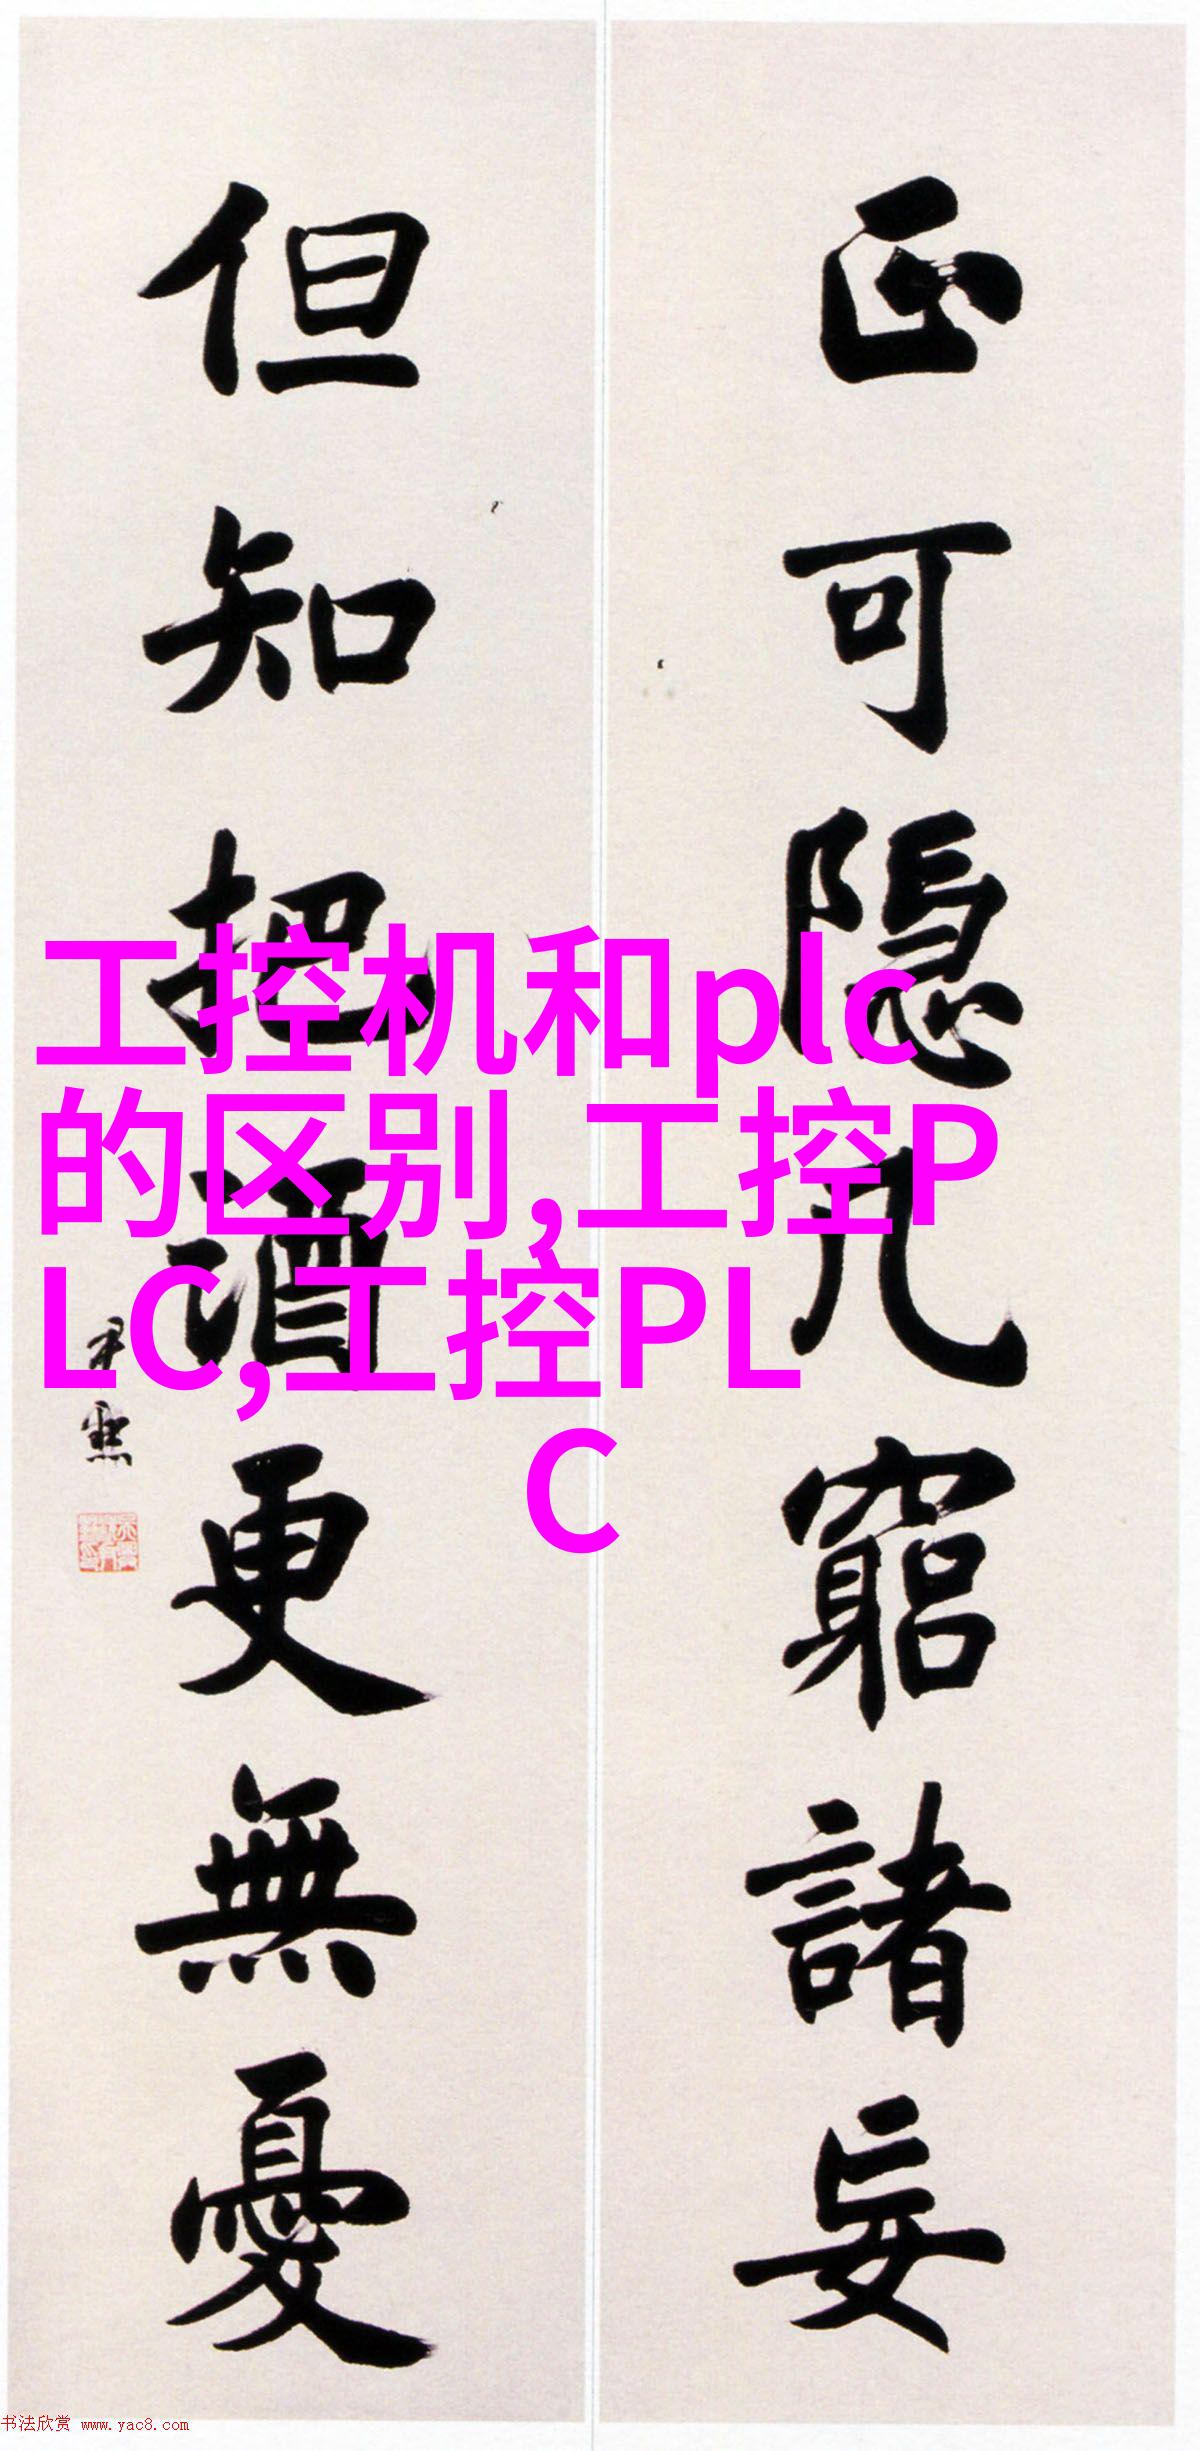 正可隱几窮諸妄
但知把酒更無憂
工控机和plc
的区别,工控P
LC,工控PL
C
书法欣赏 www.yac8.com